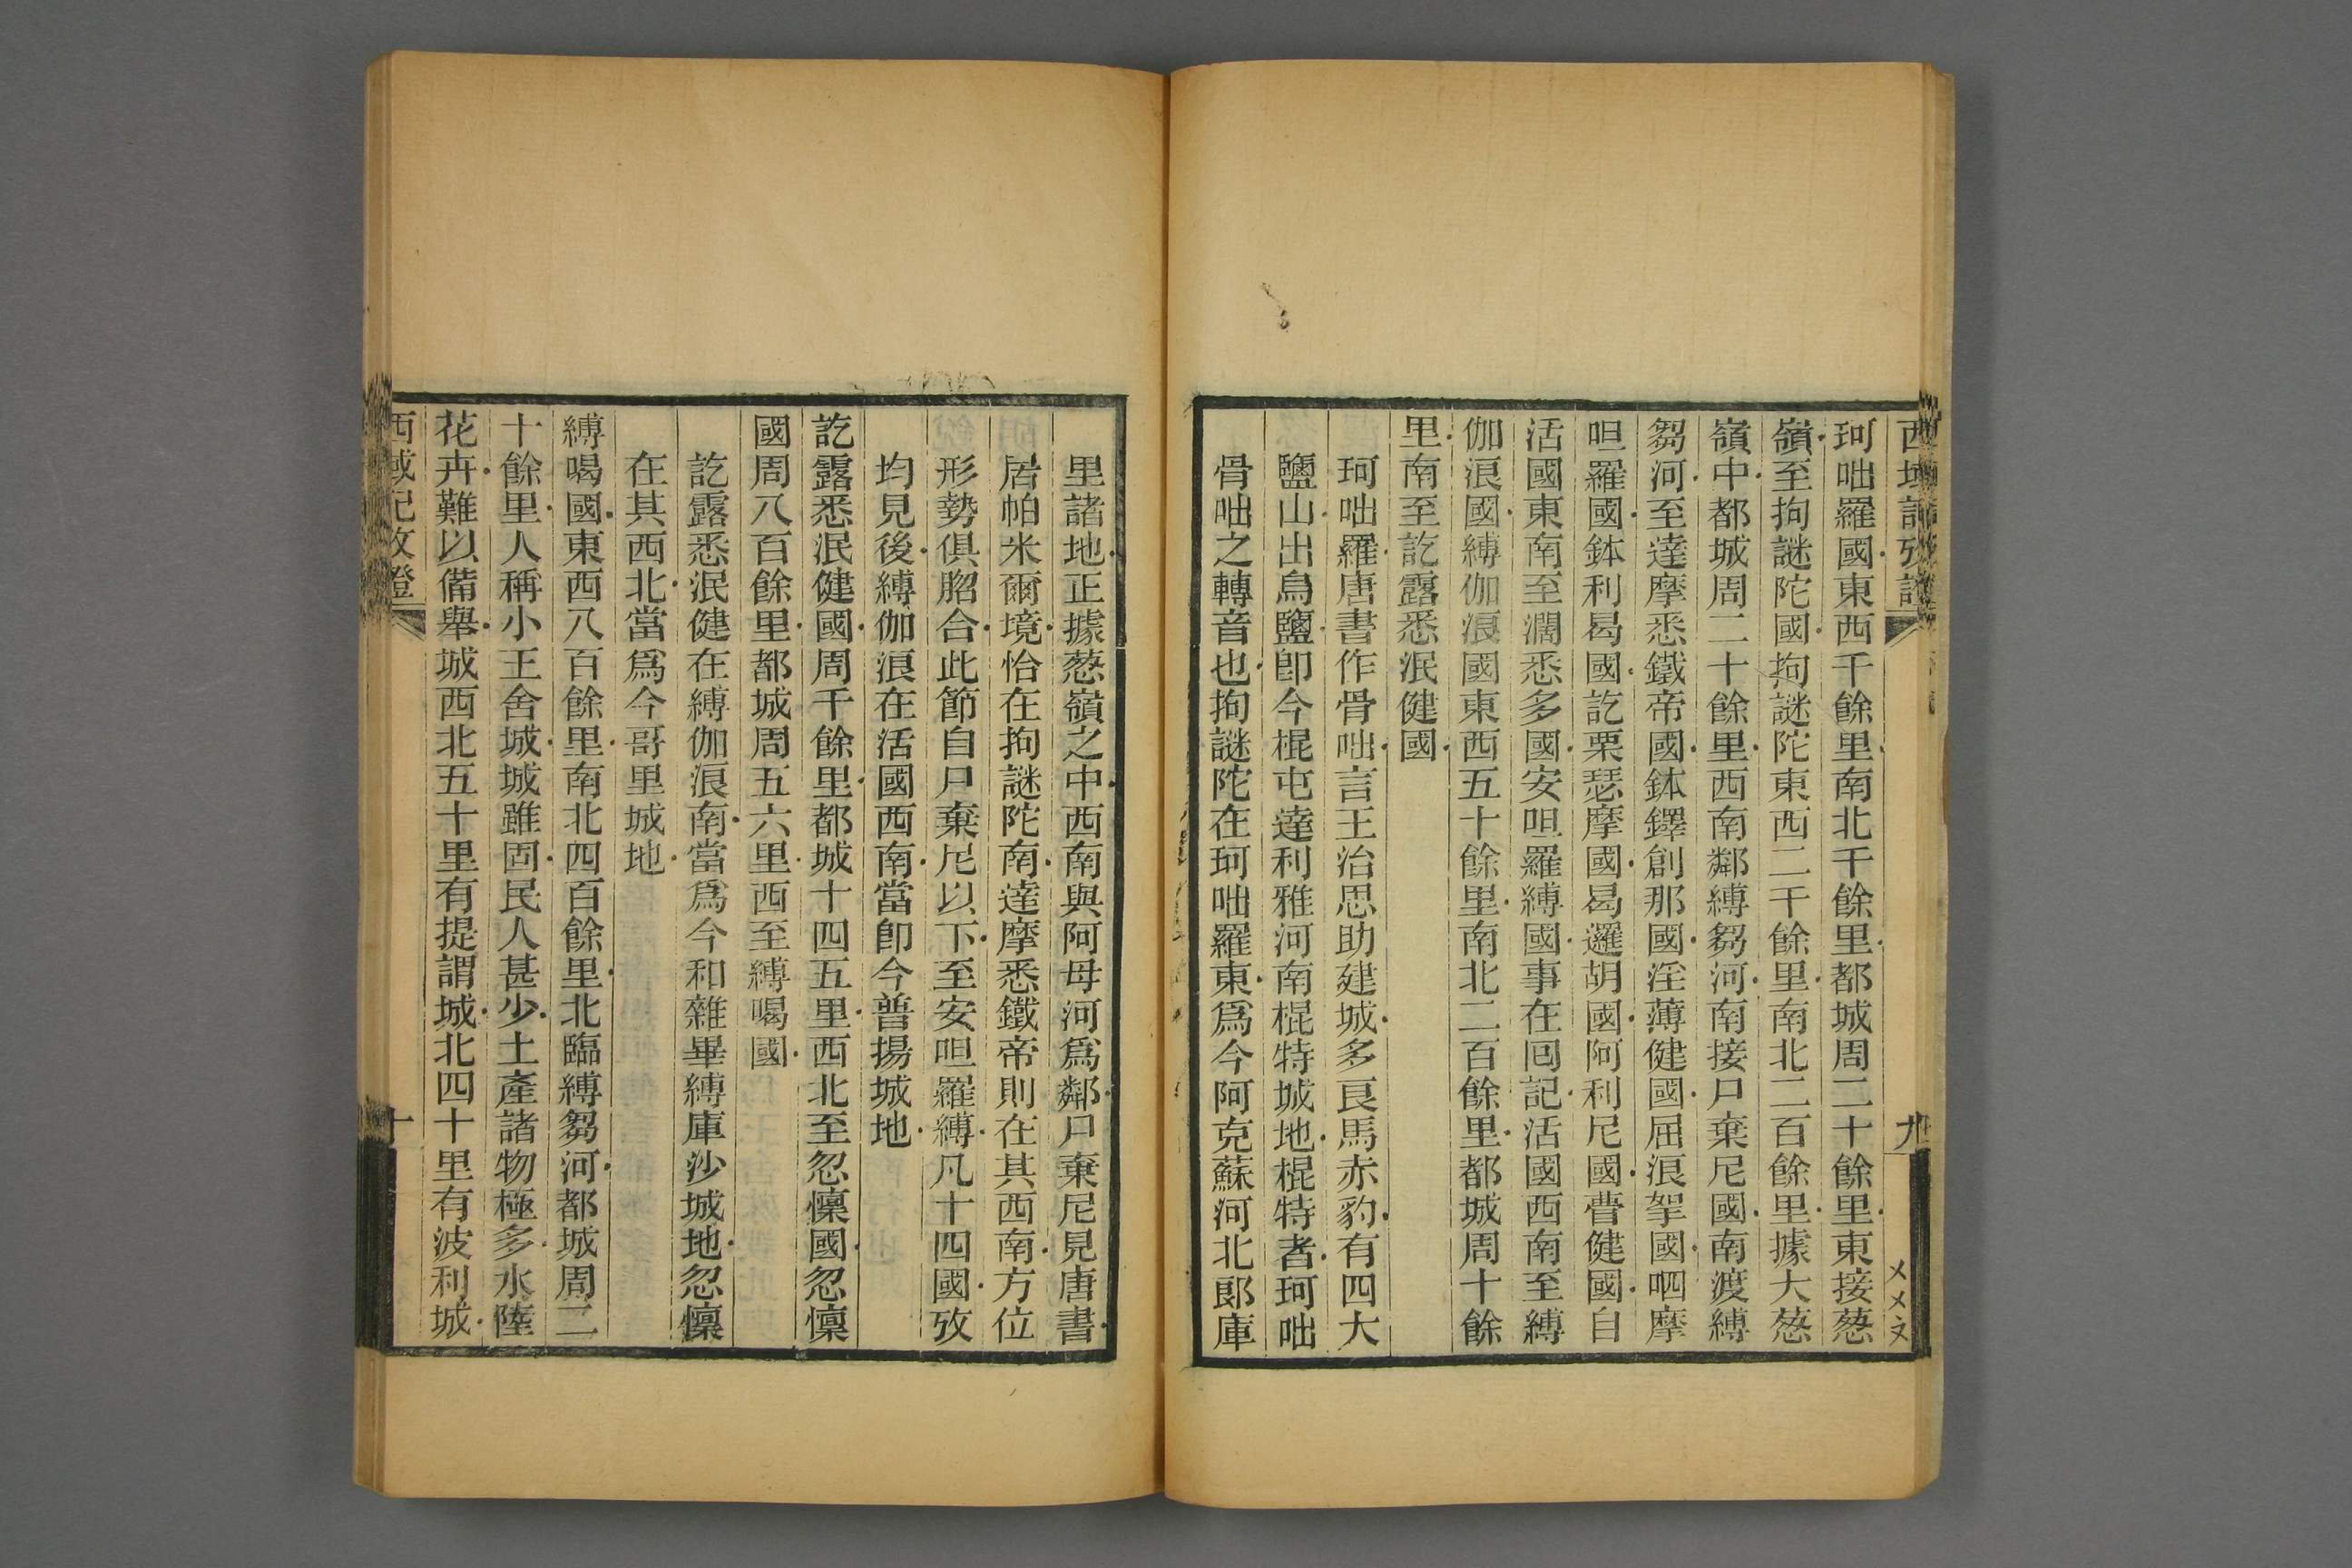 西域記攷證
九
乄乄文
珂咄羅國東西千餘里南北千餘里都城周二十餘里東接葱
嶺至拘謎陀國拘謎陀東西二千餘里南北二百餘里據大葱
嶺中都城周二十餘里西南鄰縛芻河南接尸棄尼國南渡縛
芻河至達摩悉鐵帝國鉢鐸創那國淫薄健國屈浪拏國呬摩
呾羅國鉢利曷國訖栗瑟摩國曷邏胡國阿利尼國曹健國自
活國東南至濶悉多國安呾羅縛國事在囘記活國西南至縛
伽浪國縛伽浪國東西五十餘里南北二百餘里都城周十餘
里南至訖露悉泯健國
珂咄羅唐書作骨咄言王治思助建城多良馬赤豹有四大
鹽山出烏鹽卽今棍屯達利雅河南棍特城地棍特者珂咄
骨咄之轉音也拘謎陀在珂咄羅東爲今阿克蘇河北郞庫
里諸地正據葱嶺之中西南與阿母河爲鄰尸棄尼見唐書
居帕米爾境恰在拘謎陀南達摩悉鐵帝則在其西南方位
形勢俱脗合此節自尸棄尼以下至安呾羅縛凡十四國攷
均見後縛伽浪在活國西南當卽今普揚城地
訖露悉泯健國周千餘里都城十四五里西北至忽懍國忽懍
國周八百餘里都城周五六里西至縛喝國
訖露悉泯健在縛伽浪南當爲今和雜畢縛庫沙城地忽懍
在其西北當爲今哥里城地
縛喝國東西八百餘里南北四百餘里北臨縛芻河都城周二
十餘里人稱小王舍城城雖固民人甚少土產諸物極多水陸
花卉難以備舉城西北五十里有提謂城北四十里有波利城
西域記攷證
十